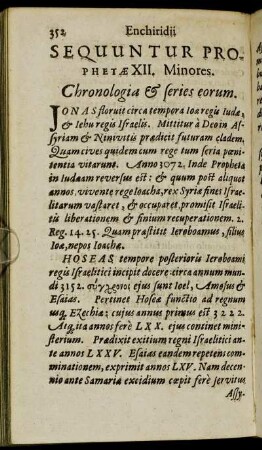 352 Enchiridii
SEQUUNTUR PRO-
PHETÆ XII, Minores.
Chronologia & series eorum.
JONAS floruit circa tempora Ioa regis Iudæ,
& Iehu regis Israelis. Mittitur à Deo in As-
syriam & Ninivitis prædicit futuram cladem,
Quam cives quidem cum rege tum seria pœni-
tentia vitarunt. Anno 3072, Inde Propheta
in Iudæam reversus est: & quum post aliquot
annos, vivente rege Ioacha, rex Syriæ fines Israe-
litarum vastaret, & occuparet, promisit Israeli-
tis liberationem & finium recuperationem. 2.
Reg. 14. 25. Quam præstitit Ieroboamus, filius
Ioæ, nepos Ioachæ.
HOSEAS tempore posterioris Ieroboami
regis Israelitici incipit docere: circa annum mun-
di 3152. σύγχρονοι ejus sunt Ioel, Amosus &
Esaias. Pertinet Hoseæ functio ad regnum
usq; Ezechiæ; cujus annus primus est 3222.
Atq; ita annos ferè LXX. ejus continet mini-
sterium. Prædixit exitium regni Israelitici an-
te annos LXXV. Esaias eandem repetens com-
minationem, exprimit annos LXV. Nam decen-
nio ante Samariæ excidium cœpit ferè jervitus
Assy-